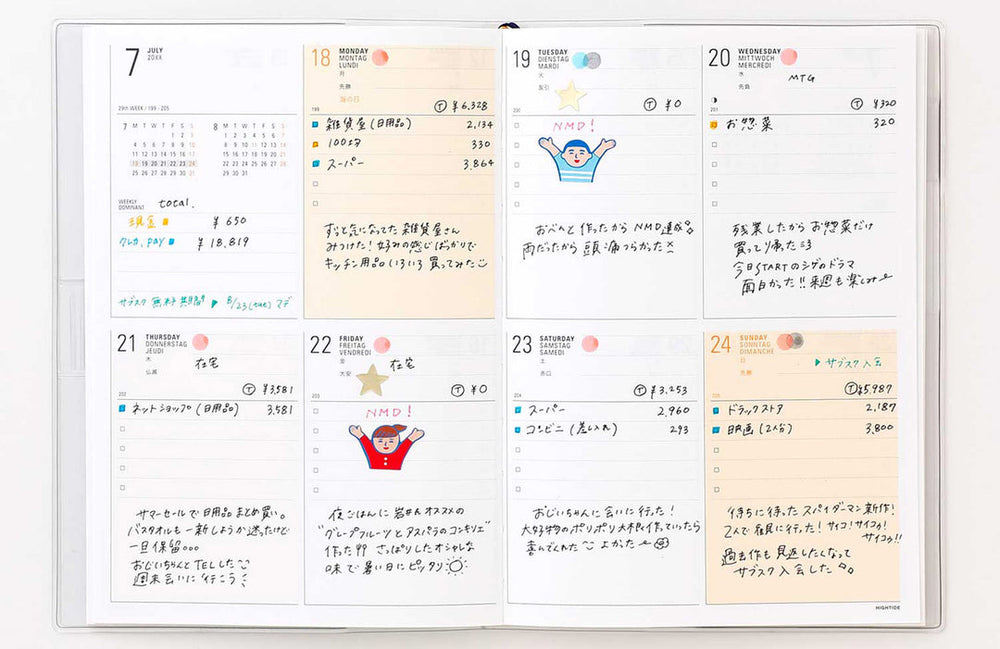 7
JULY
20XX
29th WEEK / 199 - 205
7 M T W T F S S
1 2 3
4 5 6 7 8 9 10
11 12 13 14 15 16 17
18 19 20 21 22 23 24
25 26 27 28 29 30 31
8 M T W T F S S
1 2 3 4 5 6 7
8 9 10 11 12 13 14
15 16 17 18 19 20 21
22 23 24 25 26 27 28
29 30 31
WEEKLY DOMINANT
total.
現金 ¥650
クレカ, pay ¥18,819
サブスク 無料期間 ▶ 8/23(tue) マデ
18
MONDAY
MONTAG
LUNDI
月
先勝
海の日
199
Ⓣ ¥6,328
雑貨屋(日用品) 2,134
100均 330
スーパー 3,864
ずっと気になってた 雑貨屋さん
みつけた!好みの感じばっかりで
キッチン用品いろいろ買ってみた
19
TUESDAY
DIENSTAG
MARDI
火
友引
200
Ⓣ ¥0
NMD!
おべんと作ったから NMD達成
雨だったから 頭痛つらかった
20
WEDNESDAY
MITTWOCH
MERCREDI
水
先負
MTG
201
Ⓣ ¥320
お惣菜 320
残業したから お惣菜だけ
買って帰った
今日STARTのシゲのドラマ
面白かった!!来週も楽しみ
21
THURSDAY
DONNERSTAG
JEUDI
木
仏滅
在宅
202
Ⓣ ¥3,581
ネットショップ(日用品) 3,581
サマーセールで日用品まとめ買い。
バスタオルも一新しようか迷ったけど
一旦保留。。。
おじいちゃんとTELした
週末会いに行こう
22
FRIDAY
FREITAG
VENDREDI
金
大安
在宅
203
Ⓣ ¥0
NMD!
夜ごはんに 岩田さんオススメの
"グレープフルーツとアスパラのコンキリエ"
作った!! さっぱりしたオシャレな
味で暑い日にピッタリ
23
SATURDAY
SAMSTAG
SAMEDI
土
赤口
204
Ⓣ ¥3,253
スーパー 2,960
コンビニ(差し入れ) 293
おじいちゃんに会いに行った!
大好物のポリポリ大根作っていったら
喜んでくれた よかった
24
SUNDAY
SONNTAG
DIMANCHE
日
先勝
▶ サブスク入会
205
Ⓣ ¥5,987
ドラッグストア 2,187
映画(2人分) 3,800
待ちに待った スパイダーマン新作!
2人で 行った!サイコ!サイコゥ!
サイコゥ!!
過去作も見返したくなって
サブスク入会した
HIGHTIDE